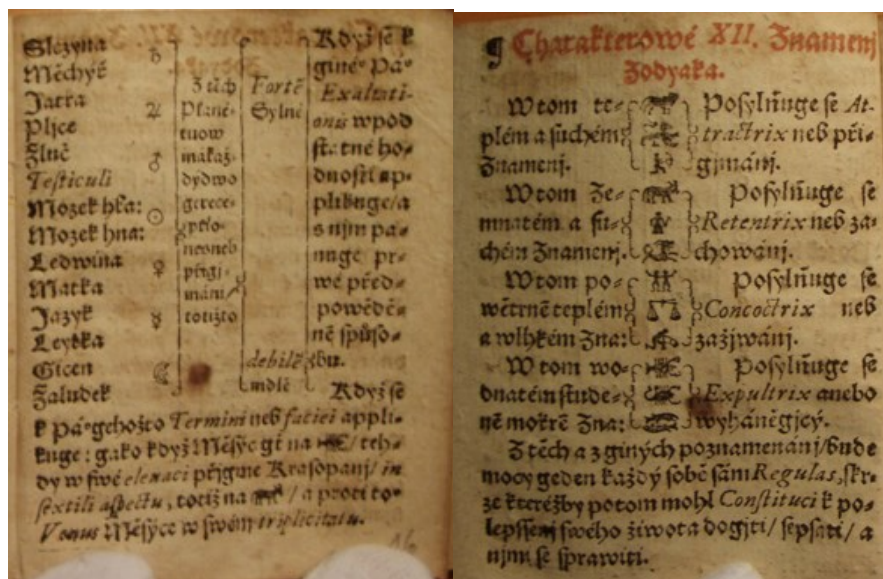 Slezyna
Měchyř
Jatra
Plice
Žluč
Testiculi
Mozek hla:
Mozek hna:
Ledwina
Matka
Jazyk
Leytka
Gicen
Žaludek
♄
♃
♂
☉
♀
☿
☾
Z těch
Plané-
tuow
makaž-
dydwo
gi
totižto
Fortē
Sylné
debilē
mdlé
Když sě k
giné° Pá°
Exaltati-
onis wpod
statné ho-
dnosti ap-
plikuge/a
s nim pa-
nuge pr-
wé před-
powědě-
né spůso-
bu.
Když se
k Pá° gehožto Termini neb faciei appli-
kuge: gako když Měsýc gt na / teh-
dy w swé elenaci přigme Krasopanj/ in
sextili aspectu, totiž na / a proti to°
Venus Měsýce w swém triplicitatu.
16
¶ Charakterowé XII. Znamenj
Zodyaka.
W tom te-
plém a suchém
Znamenj.
Posylňuge se At-
tractrix neb při-
gjmánj.
W tom Ze-
mnatém a su-
chém Znamenj.
Posylňuge se
Retentrix neb za-
chowánj.
W tom po-
wětrně teplém
a wlhkém Zna:
Posylňuge se
Concoctrix neb
zažjwánj.
W tom wo-
dnatém stude-
ně mokrě Zna:
Posylňuge se
Expultrix anebo
wyháněgjcý.
Z těch a z giných poznamenánj/bude
mocy geden každý sobě sám Regulas, skr-
ze kteréžby potom mohl Constituci k po-
lepssenj swého žiwota dogjti/ sepsati/ a
njmi se sprawiti.